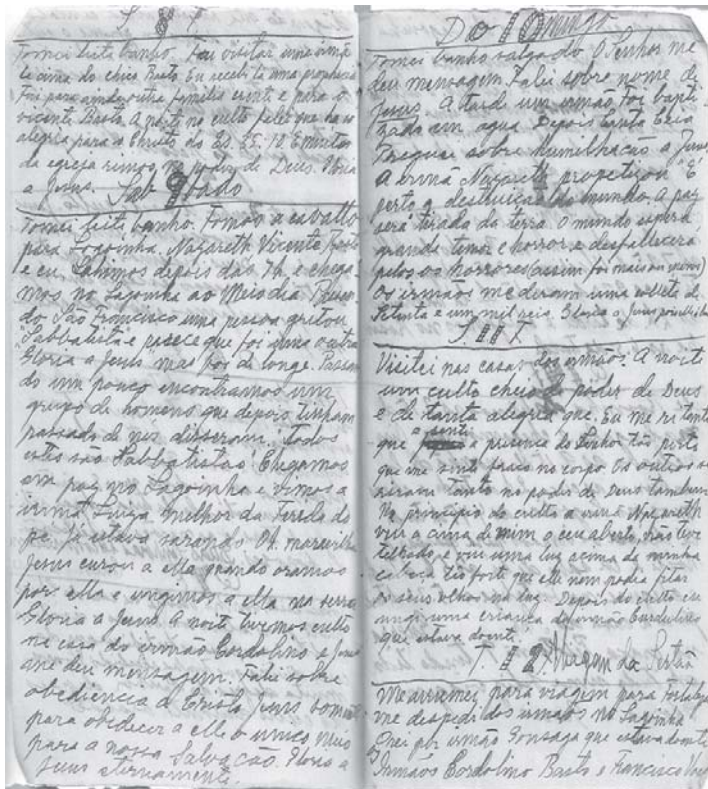 S. 8 T
Tomei leite banho. Fui visitar uma irmã
lá cima do chico Basto. Eu recebi lá uma prophecia
Fui para ainda outra familia crente e para o
vicente Basto. A noite no culto falei que ha
alegria para o Christo do Es. 55.12. E muitos
da egreja rimos no poder de Deus. Gloria
a Jesus.
Sab 9 bado
Tomei leite banho. Fomos a cavallo
para Lagoinha. Nazareth Vicente Basto
e eu. Sahimos depois das 7h e chega-
mos no Lagoinha ao Meio dia. Passan
do São Francisco uma pessoa gritou
"Sabbatista e parece que foi uma outra
Gloria a Jesus" mas foi de longe. Passan
do um pouco encontramos um
grupo de homens que depois tinham
passado de nós disseram. Todos
estes são Sabbatistas! Chegamos
em paz no Lagoinha e vimos a
irmã Luiza melhor da Ferida do
pé. Já estava sarando. Oh. maravilha
Jesus curou a ella quando oramos
por ella e ungimos a ella na serra
Gloria a Jesus. A noite tivemos culto
na casa do irmão Cordolino e
deu mensagem. Falei sobre
obediencia a Christo Jesus
para obedecer a elle o unico meio
para a nossa Salvação. Gloria a
Jesus eternamente.
Do 10 mingo
Tomei banho salgado. O Senhor me
deu mensagem. Falei sobre nome de
Jesus. A tarde um irmão foi bapti
zado em agua. Depois Santa Ceia
Preguei sobre humilhação a Jesus
A irmã Nazareth propetizou "É
perto a destruição do mundo. A paz
será tirada da terra. O mundo espera
grande temor e horror e desfallecerá
pelos os horrores (assim foi mais ou menos)
Os irmãos me deram uma colleta de
Setenta e um mil reis. Gloria a Jesus
S. 11 T
Visitei nas casas dos irmãos. A noite
um culto cheio de poder de Deus
e de tanta alegria que. Eu me ri tanto
que senti a presença do Senhor tão perto
que me sinto fraco no corpo. Os outros se
riram tanto no poder de Deus tambem
No principio do culto a irmã Nazareth
viu a cima de mim o ceu aberto, não teve
telhado, e viu uma luz acima de minha
cabeça tão forte que elle nem podia fitar
os seus olhos na luz. Depois do culto eu
ungi uma criança do irmão Cordolino
que estava doente.
T. 12. Viagem da Sertão
Me arrumei para viagem para Fortaleza
me despedi dos irmãos no Lagoinha
Orei por irmão Gonsaga que estava doente
Irmãos Cordolino Basto e Francisco